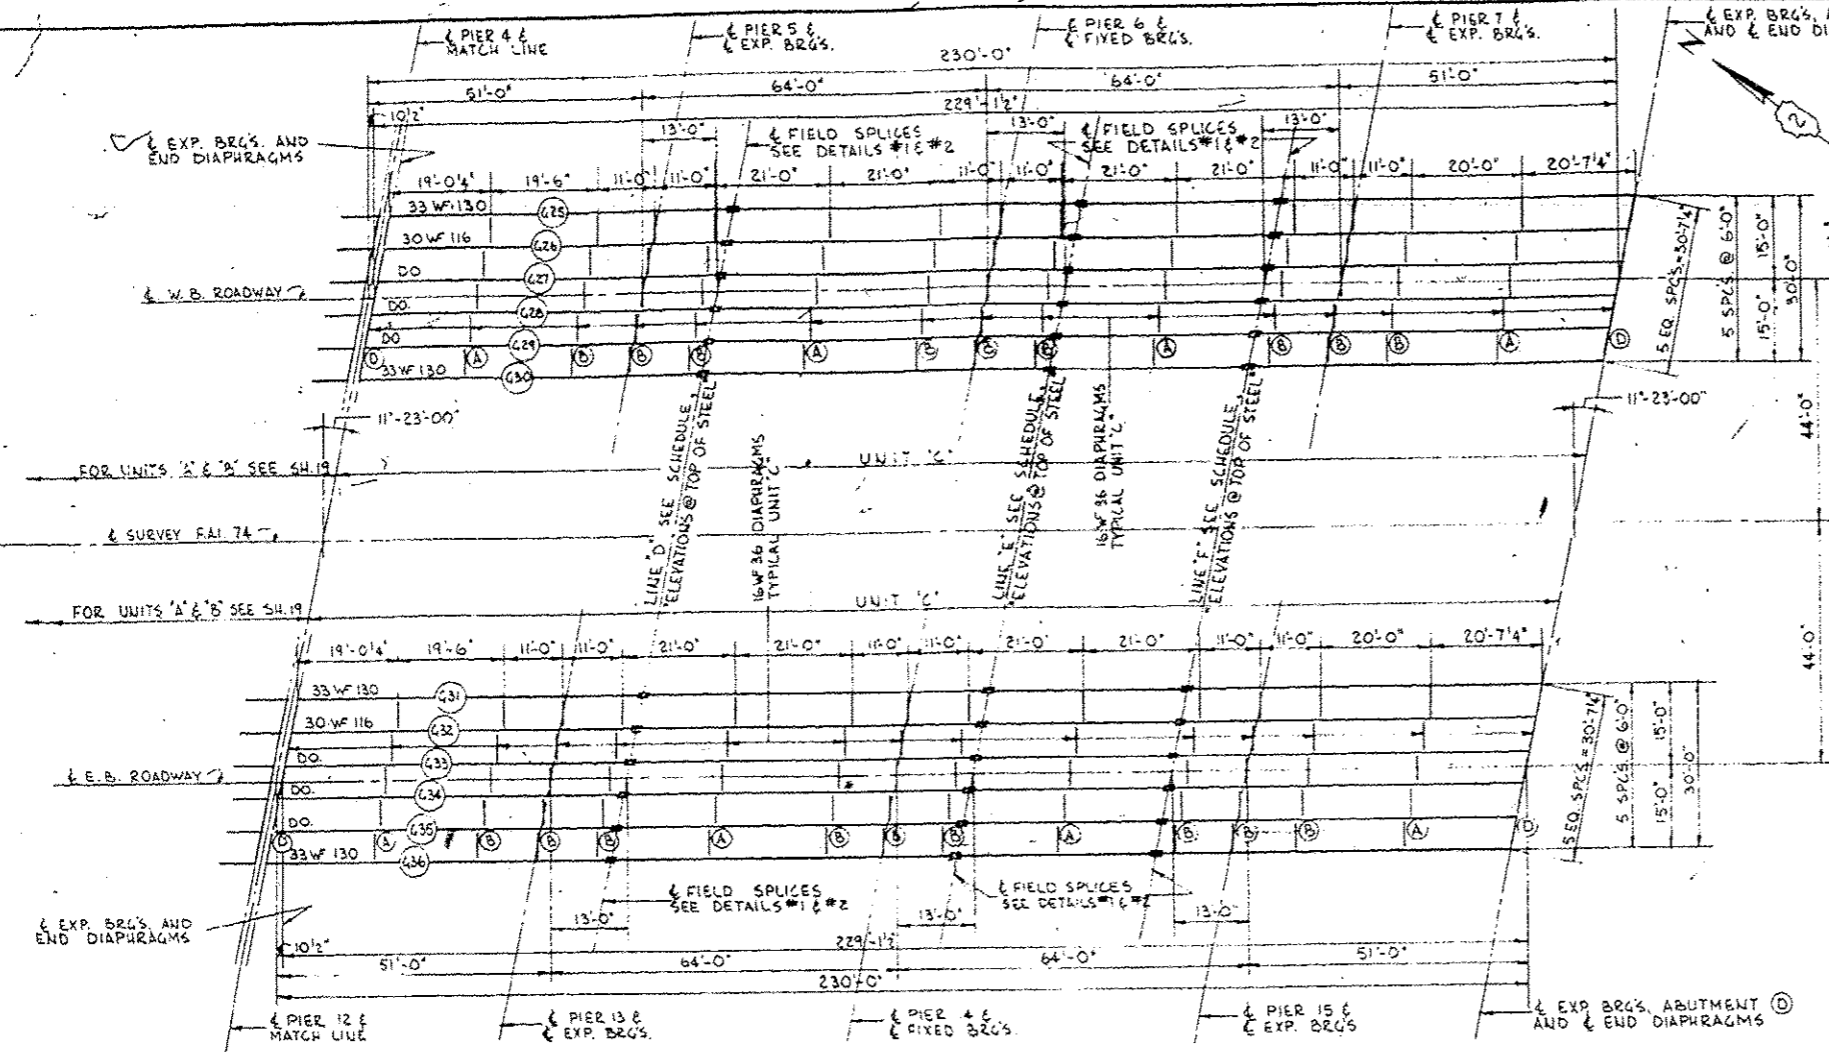 ℄ PIER 4 &
MATCH LINE
℄ PIER 5 &
℄ EXP. BRG'S.
℄ PIER 6 &
℄ FIXED BRG'S.
℄ PIER 7 &
℄ EXP. BRG'S.
℄ EXP. BRG'S,
AND ℄ END
N
2
230'-0"
51'-0" 64'-0" 64'-0" 51'-0"
229'-1½"
10½"
13'-0" 13'-0" 13'-0"
℄ EXP. BRG'S. AND
END DIAPHRAGMS
℄ FIELD SPLICES
SEE DETAILS #1 & #2
℄ FIELD SPLICES
SEE DETAILS #1 & #2
19'-0¼" 19'-6" 11'-0" 11'-0" 21'-0" 21'-0" 11'-0" 11'-0" 21'-0" 21'-0" 11'-0" 11'-0" 20'-0" 20'-7¼"
33 WF 130 G25
30 WF 116 G26
DO G27
℄ W. B. ROADWAY
DO. G28
DO G29
D A B B B A B C B A B B B A D
33 WF 130 G30
5 EQ. SPC'S. = 30'-7¼"
5 SPC'S. @ 6'-0"
15'-0" 15'-0"
30'-0"
44'-0"
11°-23'-00"
11°-23'-00"
FOR UNITS 'A' & 'B' SEE SH.19
UNIT 'C'
℄ SURVEY F.A.I. 74
LINE "D" SEE SCHEDULE
"ELEVATIONS @ TOP OF STEEL"
16 WF 36 DIAPHRAGMS
TYPICAL UNIT 'C'
LINE "E" SEE SCHEDULE
"ELEVATIONS @ TOP OF STEEL"
16 WF 36 DIAPHRAGMS
TYPICAL UNIT 'C'
LINE "F" SEE SCHEDULE
"ELEVATIONS @ TOP OF STEEL"
FOR UNITS 'A' & 'B' SEE SH.19
UNIT 'C'
44'-0"
19'-0¼" 19'-6" 11'-0" 11'-0" 21'-0" 21'-0" 11'-0" 11'-0" 21'-0" 21'-0" 11'-0" 11'-0" 20'-0" 20'-7¼"
33 WF 130 G31
30 WF 116 G32
DO. G33
℄ E. B. ROADWAY
DO. G34
DO. G35
D A B B B A B B B A B B B A D
33 WF 130 G36
5 EQ. SPC'S. = 30'-7¼"
5 SPC'S @ 6'-0"
15'-0" 15'-0"
30'-0"
℄ EXP. BRG'S. AND
END DIAPHRAGMS
℄ FIELD SPLICES
SEE DETAILS #1 & #2
℄ FIELD SPLICES
SEE DETAILS #1 & #2
13'-0" 13'-0" 13'-0"
10½"
229'-1½"
51'-0" 64'-0" 64'-0" 51'-0"
230'-0"
℄ PIER 12 &
MATCH LINE
℄ PIER 13 &
℄ EXP. BRG'S.
℄ PIER 14 &
℄ FIXED BRG'S.
℄ PIER 15 &
℄ EXP. BRG'S
℄ EXP BRG'S, ABUTMENT D
AND ℄ END DIAPHRAGMS